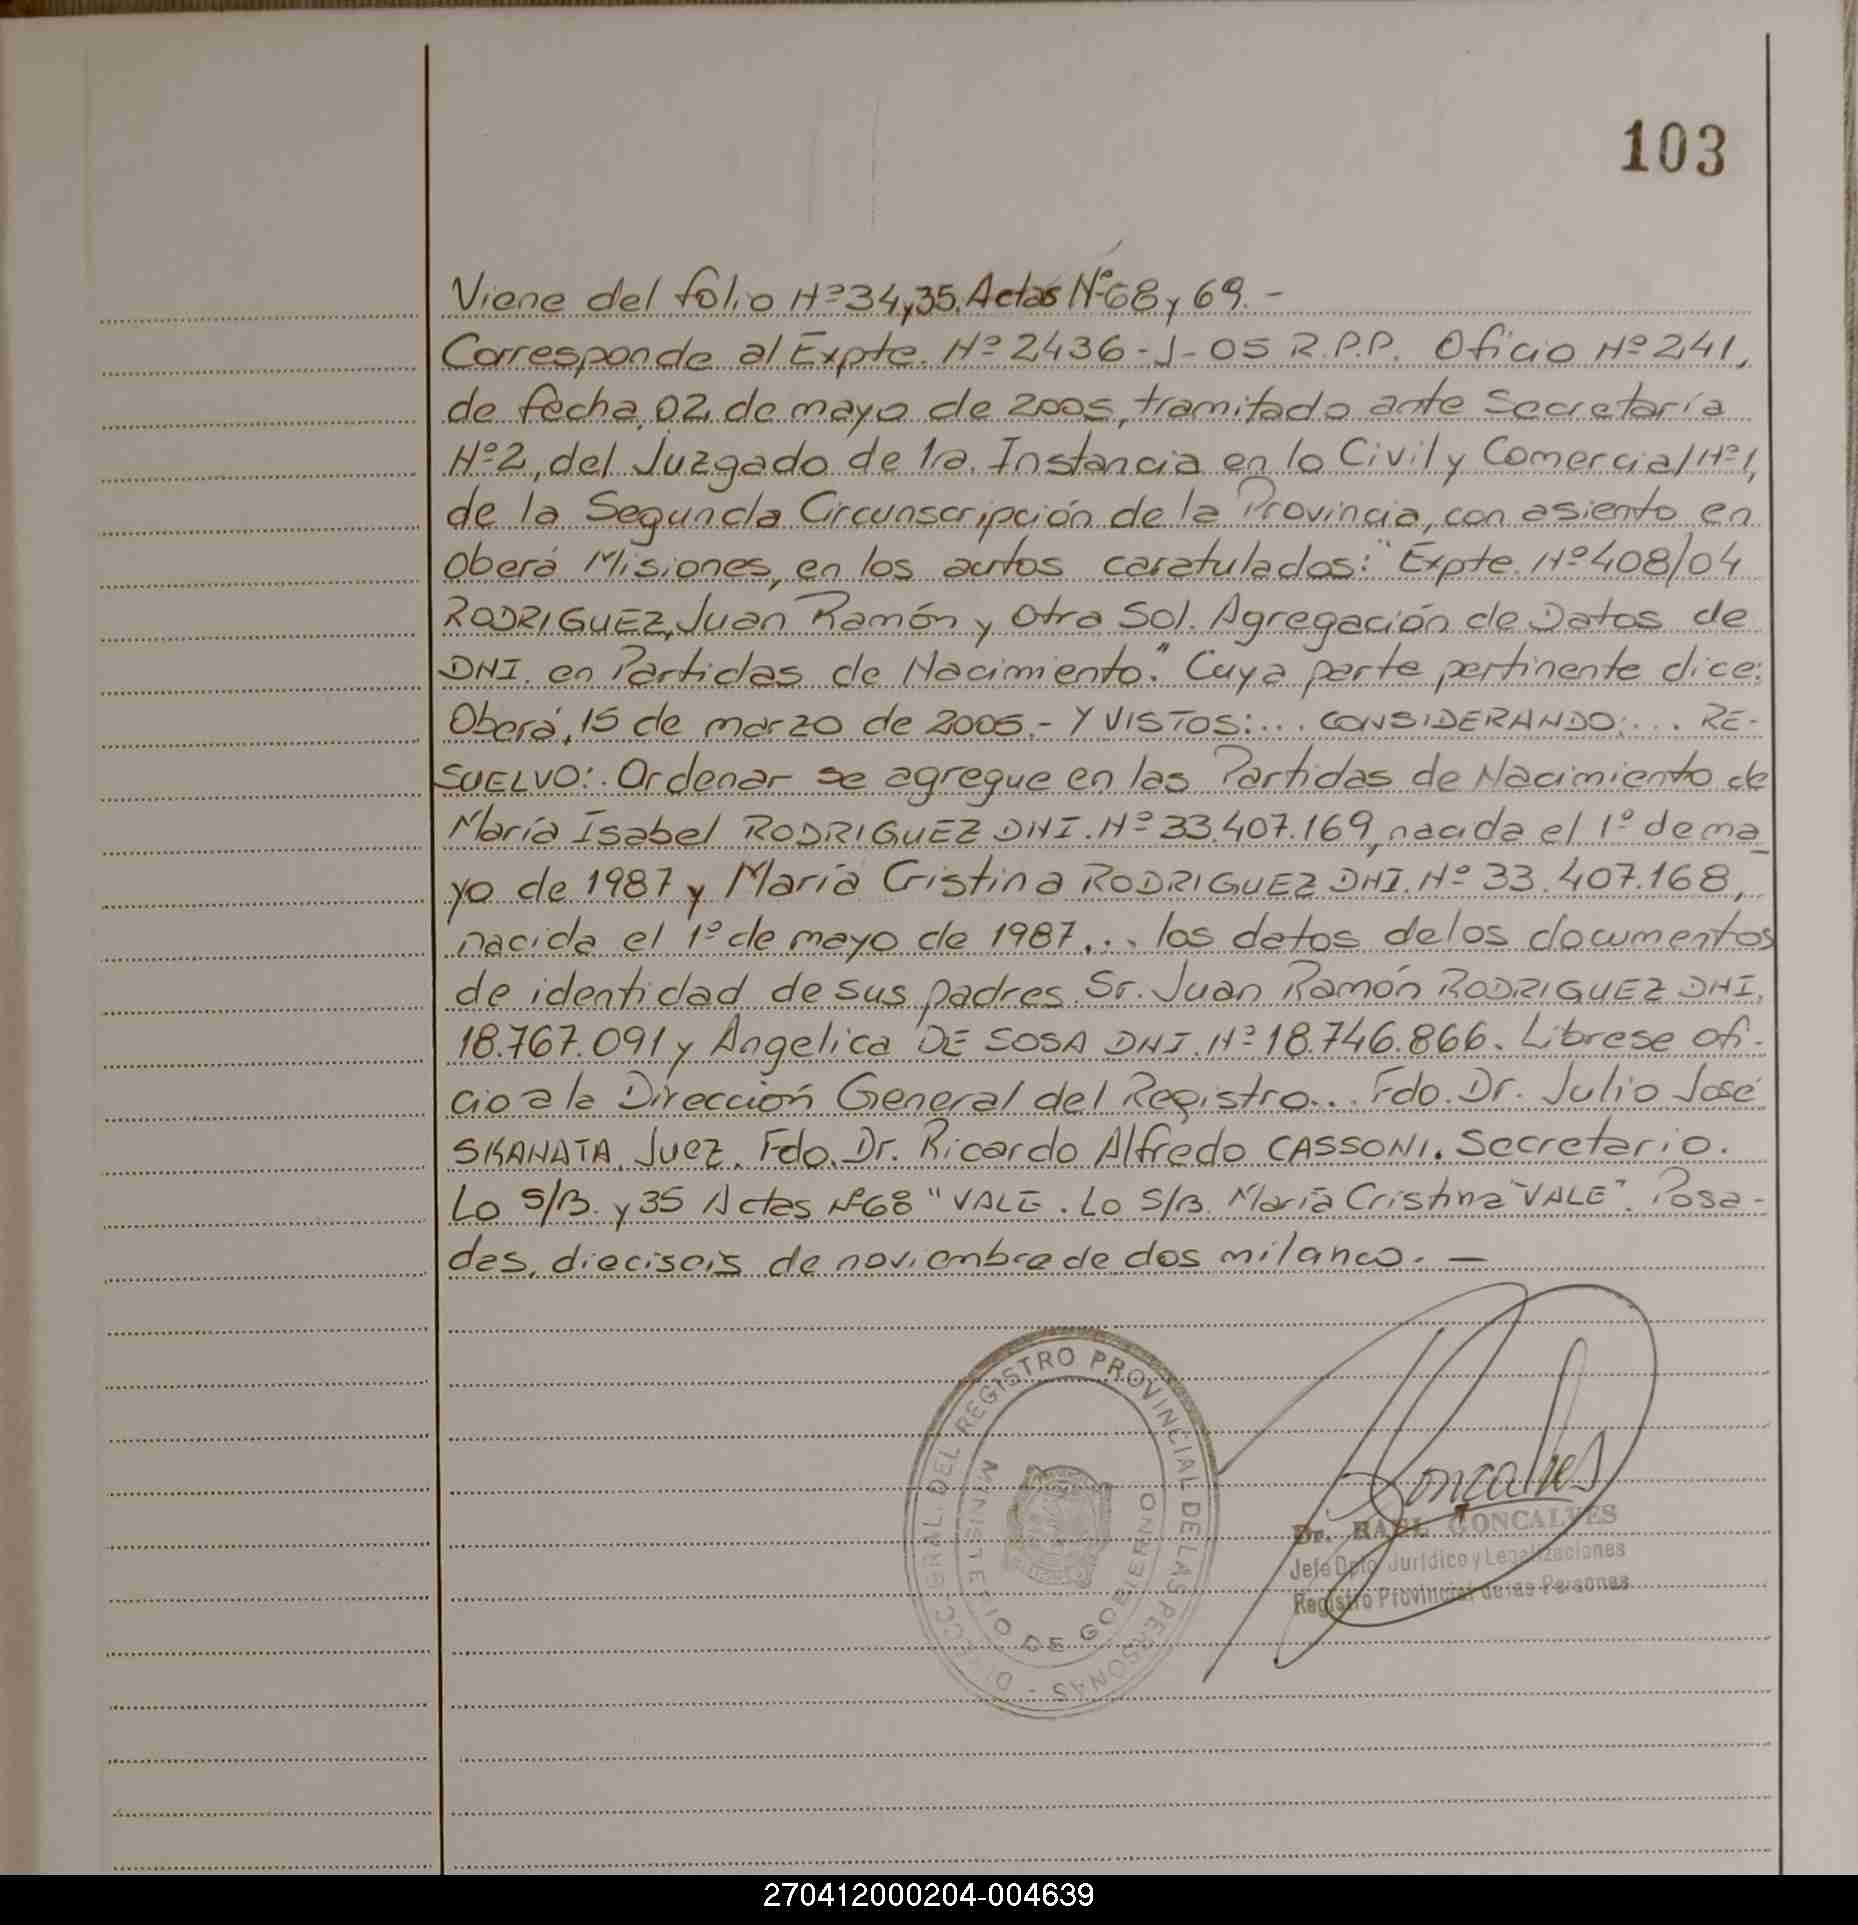 103
Viene del folio Nº 34 y 35. Actas Nº 68 y 69.-
Corresponde al Expte. Nº 2436-J-05 R.P.P. Oficio Nº 241,
de fecha 02 de mayo de 2005, tramitado ante Secretaría
Nº 2, del Juzgado de 1ra. Instancia en lo Civil y Comercial Nº 1,
de la Segunda Circunscripción de la Provincia, con asiento en
Oberá Misiones, en los autos caratulados: "Expte. Nº 408/04
RODRIGUEZ, Juan Ramón y Otra Sol. Agregación de Datos de
DNI. en Partidas de Nacimiento." Cuya parte pertinente dice:
Oberá, 15 de marzo de 2005.- Y VISTOS:... CONSIDERANDO:... RE-
SUELVO: Ordenar se agregue en las Partidas de Nacimiento de
María Isabel RODRIGUEZ DNI. Nº 33.407.169, nacida el 1º de ma_
yo de 1987 y María Cristina RODRIGUEZ DNI. Nº 33.407.168,
nacida el 1º de mayo de 1987... los datos de los documentos
de identidad de sus padres Sr. Juan Ramón RODRIGUEZ DNI.
18.767.091 y Angelica DE SOSA DNI. Nº 18.746.866. Librese ofi-
cio a la Dirección General del Registro... Fdo. Dr. Julio José
SKANATA. Juez. Fdo. Dr. Ricardo Alfredo CASSONI. Secretario.
Lo S/B. y 35 Actas Nº 68 "VALE. Lo S/B. María Cristina "VALE". Posa-
das, dieciseis de noviembre de dos mil cinco.—
DIRECC. GRAL. DEL REGISTRO PROVINCIAL DE LAS PERSONAS -
MINISTERIO DE GOBIERNO
Goncalves
Dr. RAUL GONCALVES
Jefe Dpto. Jurídico y Legalizaciones
Registro Provincial de las Personas
270412000204-004639